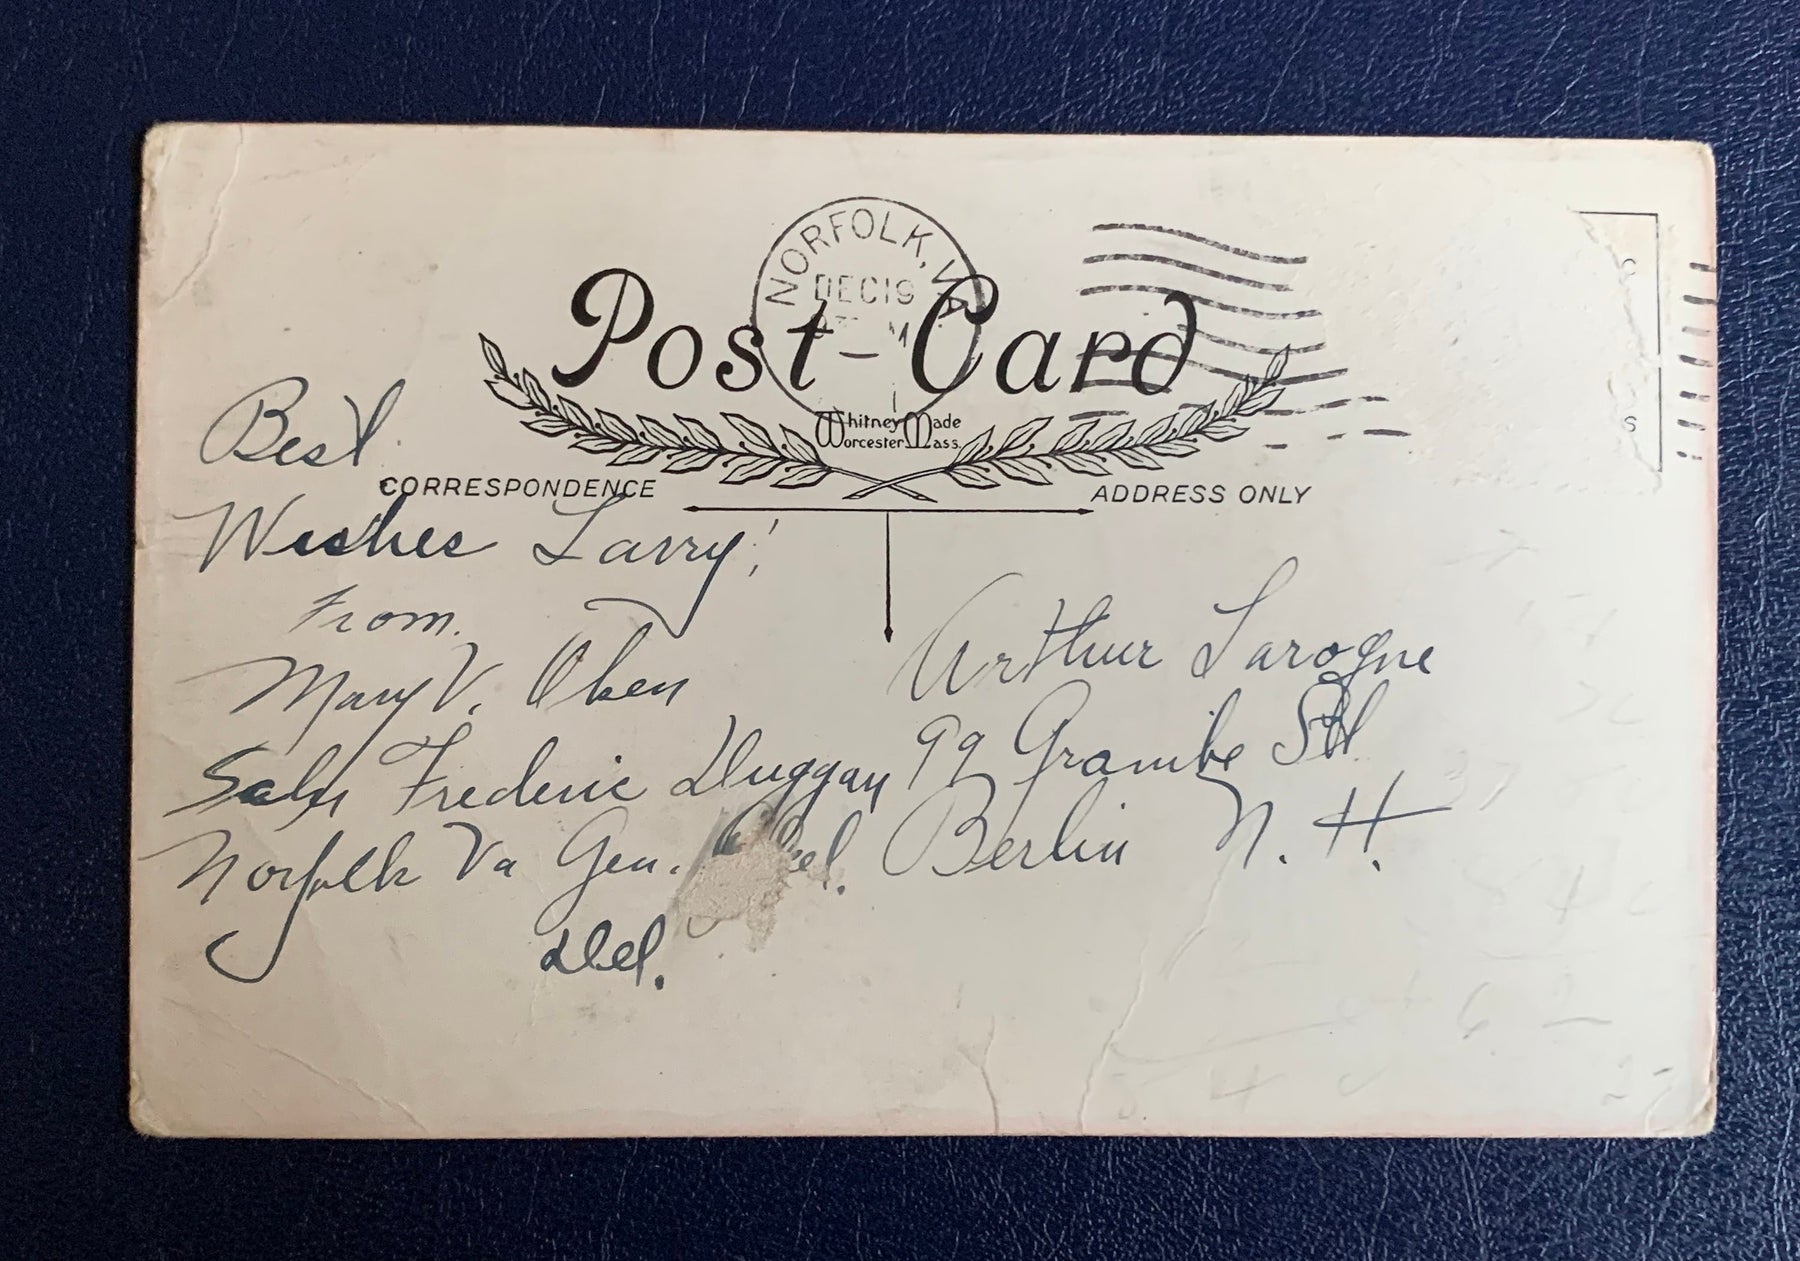 NORFOLK, VA.
DEC 19
M
Post-Card
Whitney Made
Worcester, Mass.
CORRESPONDENCE
ADDRESS ONLY
S
Best
Wishes Larry!
From.
Mary V.
Frederic Duggan
Norfolk Va Gen. Del.
Del.
Arthur Larogne
99 Grambe St
Berlin N. H.